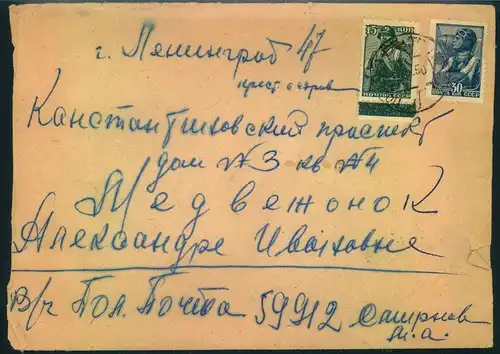 г. Ленинград 47
крест. остров
Канстантиновский проспект
дом №3 кв №4
Медвежонок
Александре Ивановне
В/ч Пол. Почта 59912 Смирнов
15 КОП
ПОЧТА СССР
30
ПОЧТА СССР